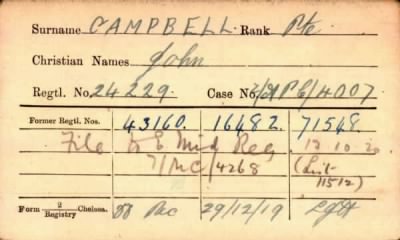 Surname CAMPBELL. Rank Pte
Christian Names John
Regtl. No. 24229. Case No. 7/MPC/4007
Former Regtl. Nos. 43160. 16482. 71548.
File to E Mid Reg 13.10.20
7/MC/4268 (List
11512)
Form 2/Registry Chelsea. Rec 29/12/19